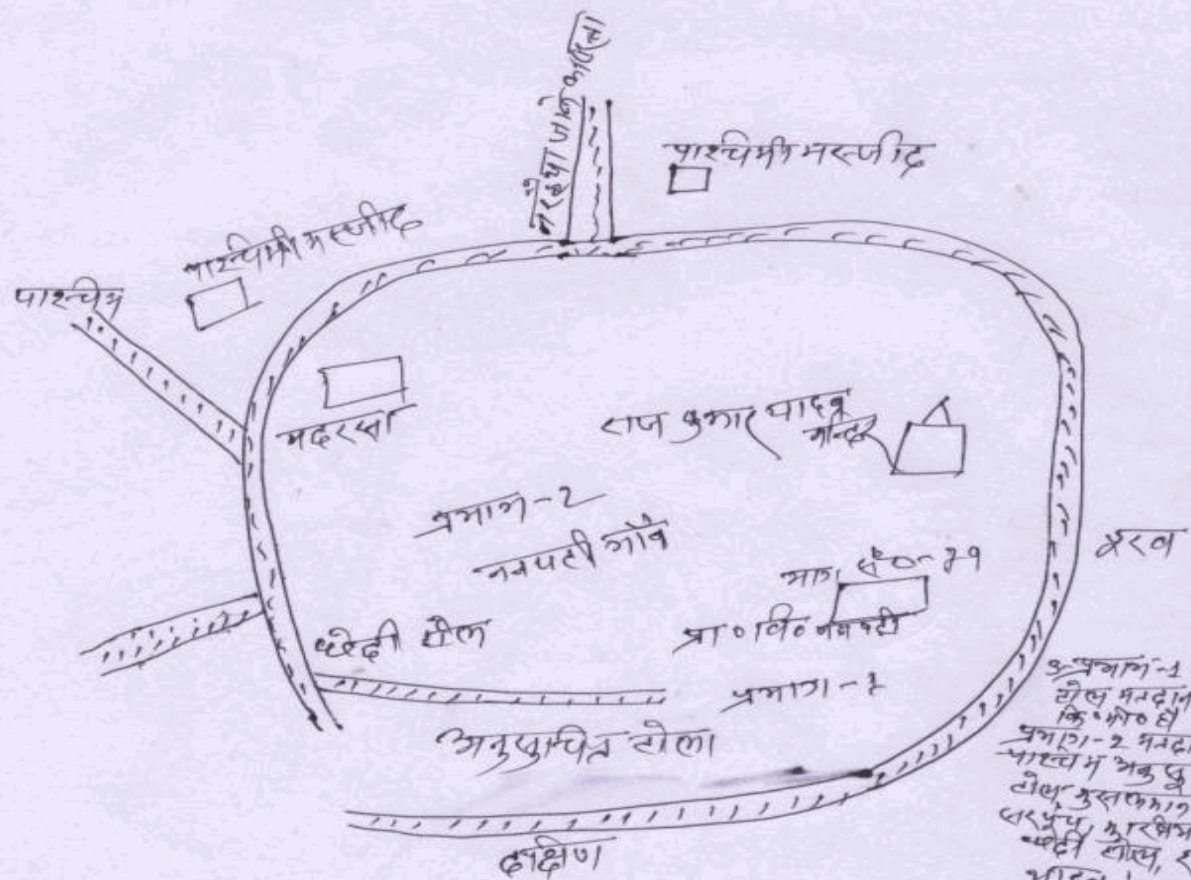 नरहैया जाने का रास्ता
पाश्चिमी मस्जीद
पाश्चिमी मस्जीद
पाश्चिम
मदरसा
राज कुमार यादव
मन्दिर
प्रभाग-2
नवपटी गाँव
भाग सं०-
पुरब
प्रा० वि० नवपटी
छेदी टोल
प्रभाग-1
अनुसुचित टोला
दक्षिण
प्रभाग-1
टोल मतदान
कि०मी० ही
प्रभाग-2 मतदा
पाश्चिम अनुसु
टोल मुसलमान
सरपंच
छेदी टोल,